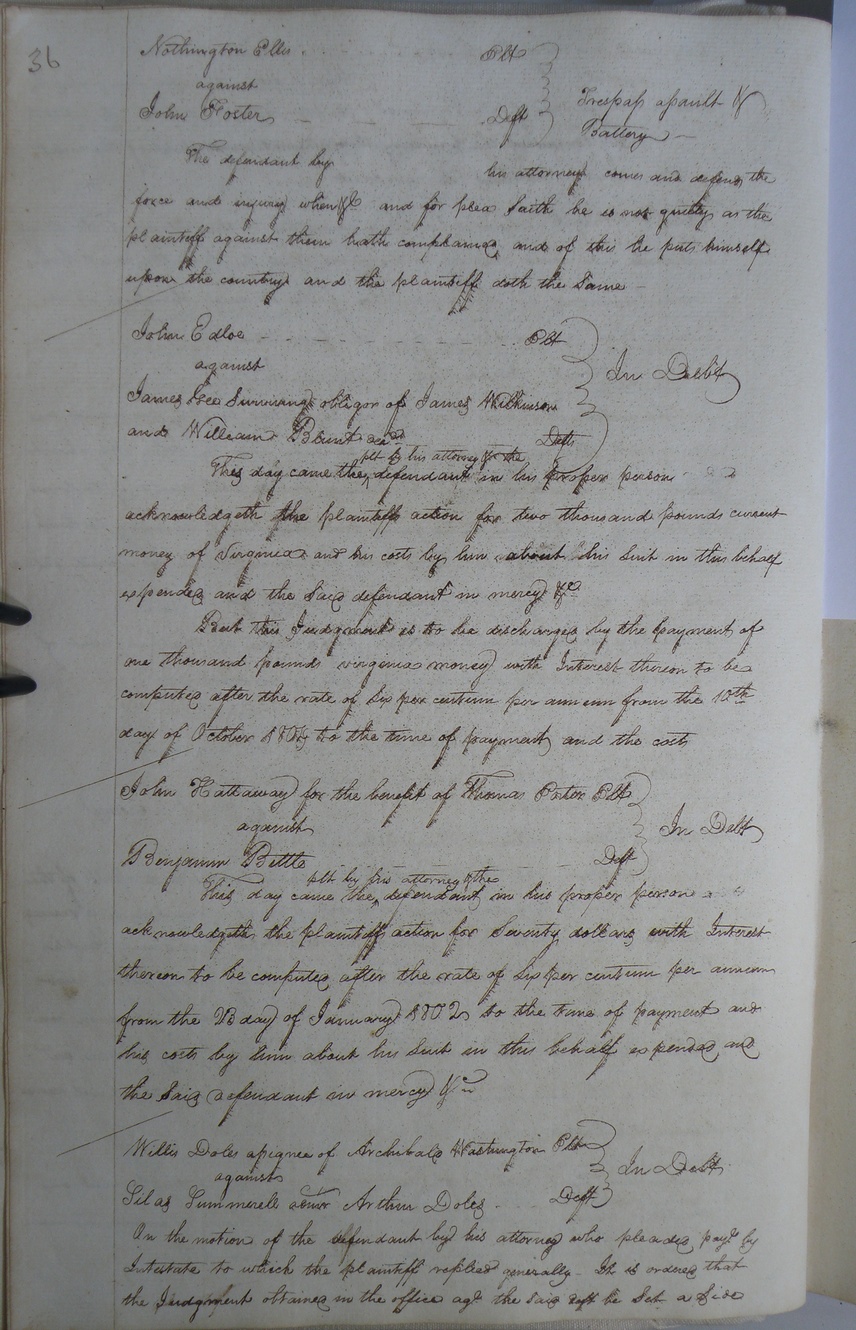 36
Nothington Ellis Plt
against
John Foster Deft
Trespass assault &
Battery
The defendant by his attorney comes and defends the
force and injury when &c and for plea saith he is not guilty as the
plaintiff against them hath complained and of this he puts himself
upon the country and the plaintiff doth the same
John Edloe Plt
against In Debt
James Lee Surviving obligor of James Wilkinson
and William Blunt decd Deft
plt by his attorney & the
This day came the defendant in his proper person
acknowledgeth the plaintiffs action for two thousand pounds current
money of Virginia and his costs by him about his suit in this behalf
expended and the said defendant in mercy &c
But this Judgment is to be discharged by the payment of
one thousand pounds virginia money with Interest thereon to be
computed after the rate of Six per centum per annum from the 10th
day of October to the time of payment and the costs
John Hattaway for the benefit of Thomas Plt
against In Debt
Benjamin Bettle Deft
plt by his attorney & the
This day came the defendant in his proper person
acknowledgeth the plaintiff action for Seventy dollars with Interest
thereon to be computed after the rate of Six per centum per annum
from the 23 day of January 1802 to the time of payment and
his costs by him about his Suit in this behalf expended and
the said defendant in mercy &c
Willis Doles assignee of Archibald Washington Plt
against In Debt
Silas Summerell admr Arthur Doles Deft
On the motion of the defendant by his attorney who pleaded payt by
Intestate to which the plaintiff replied generally. It is ordered that
the Judgment obtained in the office agt the said deft be Set a Side